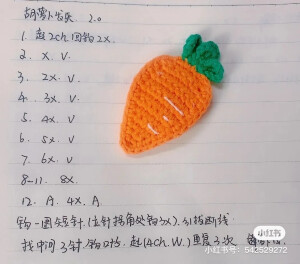 胡萝卜发夹 2.0
1. 起2ch. 回钩2X.
2. X. V
3. 2X. V.
4. 3X. V.
5. 4X. V
6. 5X. V
7. 6X. V.
8-11. 8X.
12. A. 4X. A.
钩一圈短针(立针拐角处钩3X). 引拔断线.
找中间3针,钩叶, 起(4ch.W.)重复3次
小红书
小红书号: 542529272